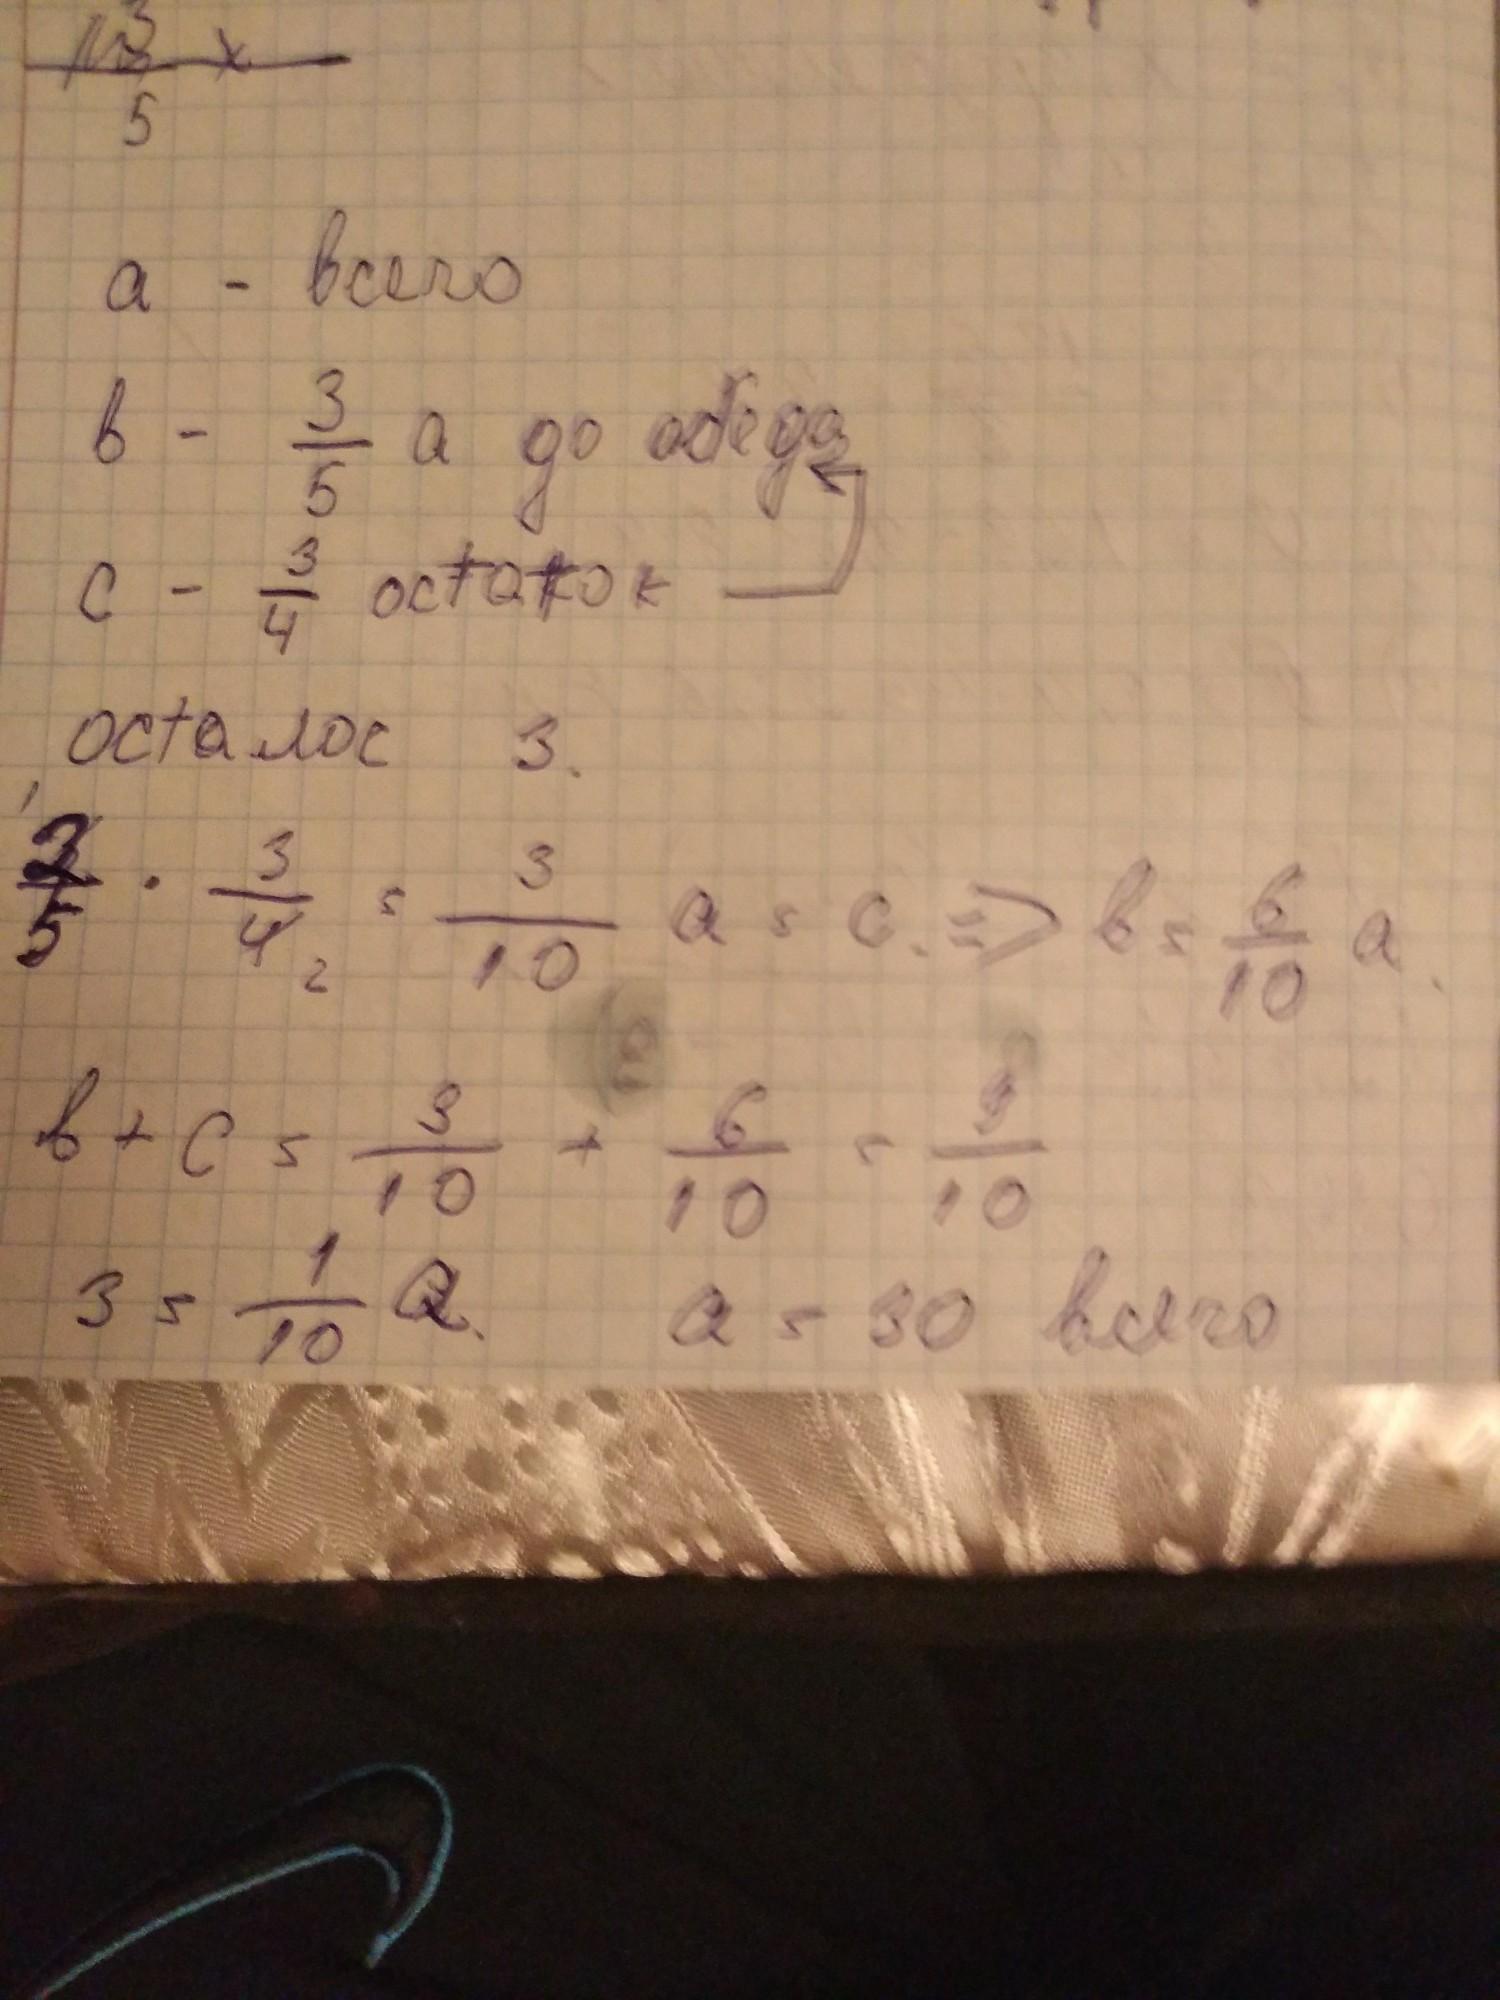 3
5
а - всего
в - 3/5 а до обеда
с - 3/4 остаток
осталос 3.
2/5 · 3/4 2 = 3/10 а = с. => в = 6/10 а.
в + с = 3/10 + 6/10 = 9/10
3 = 1/10 а. а = 30 всего